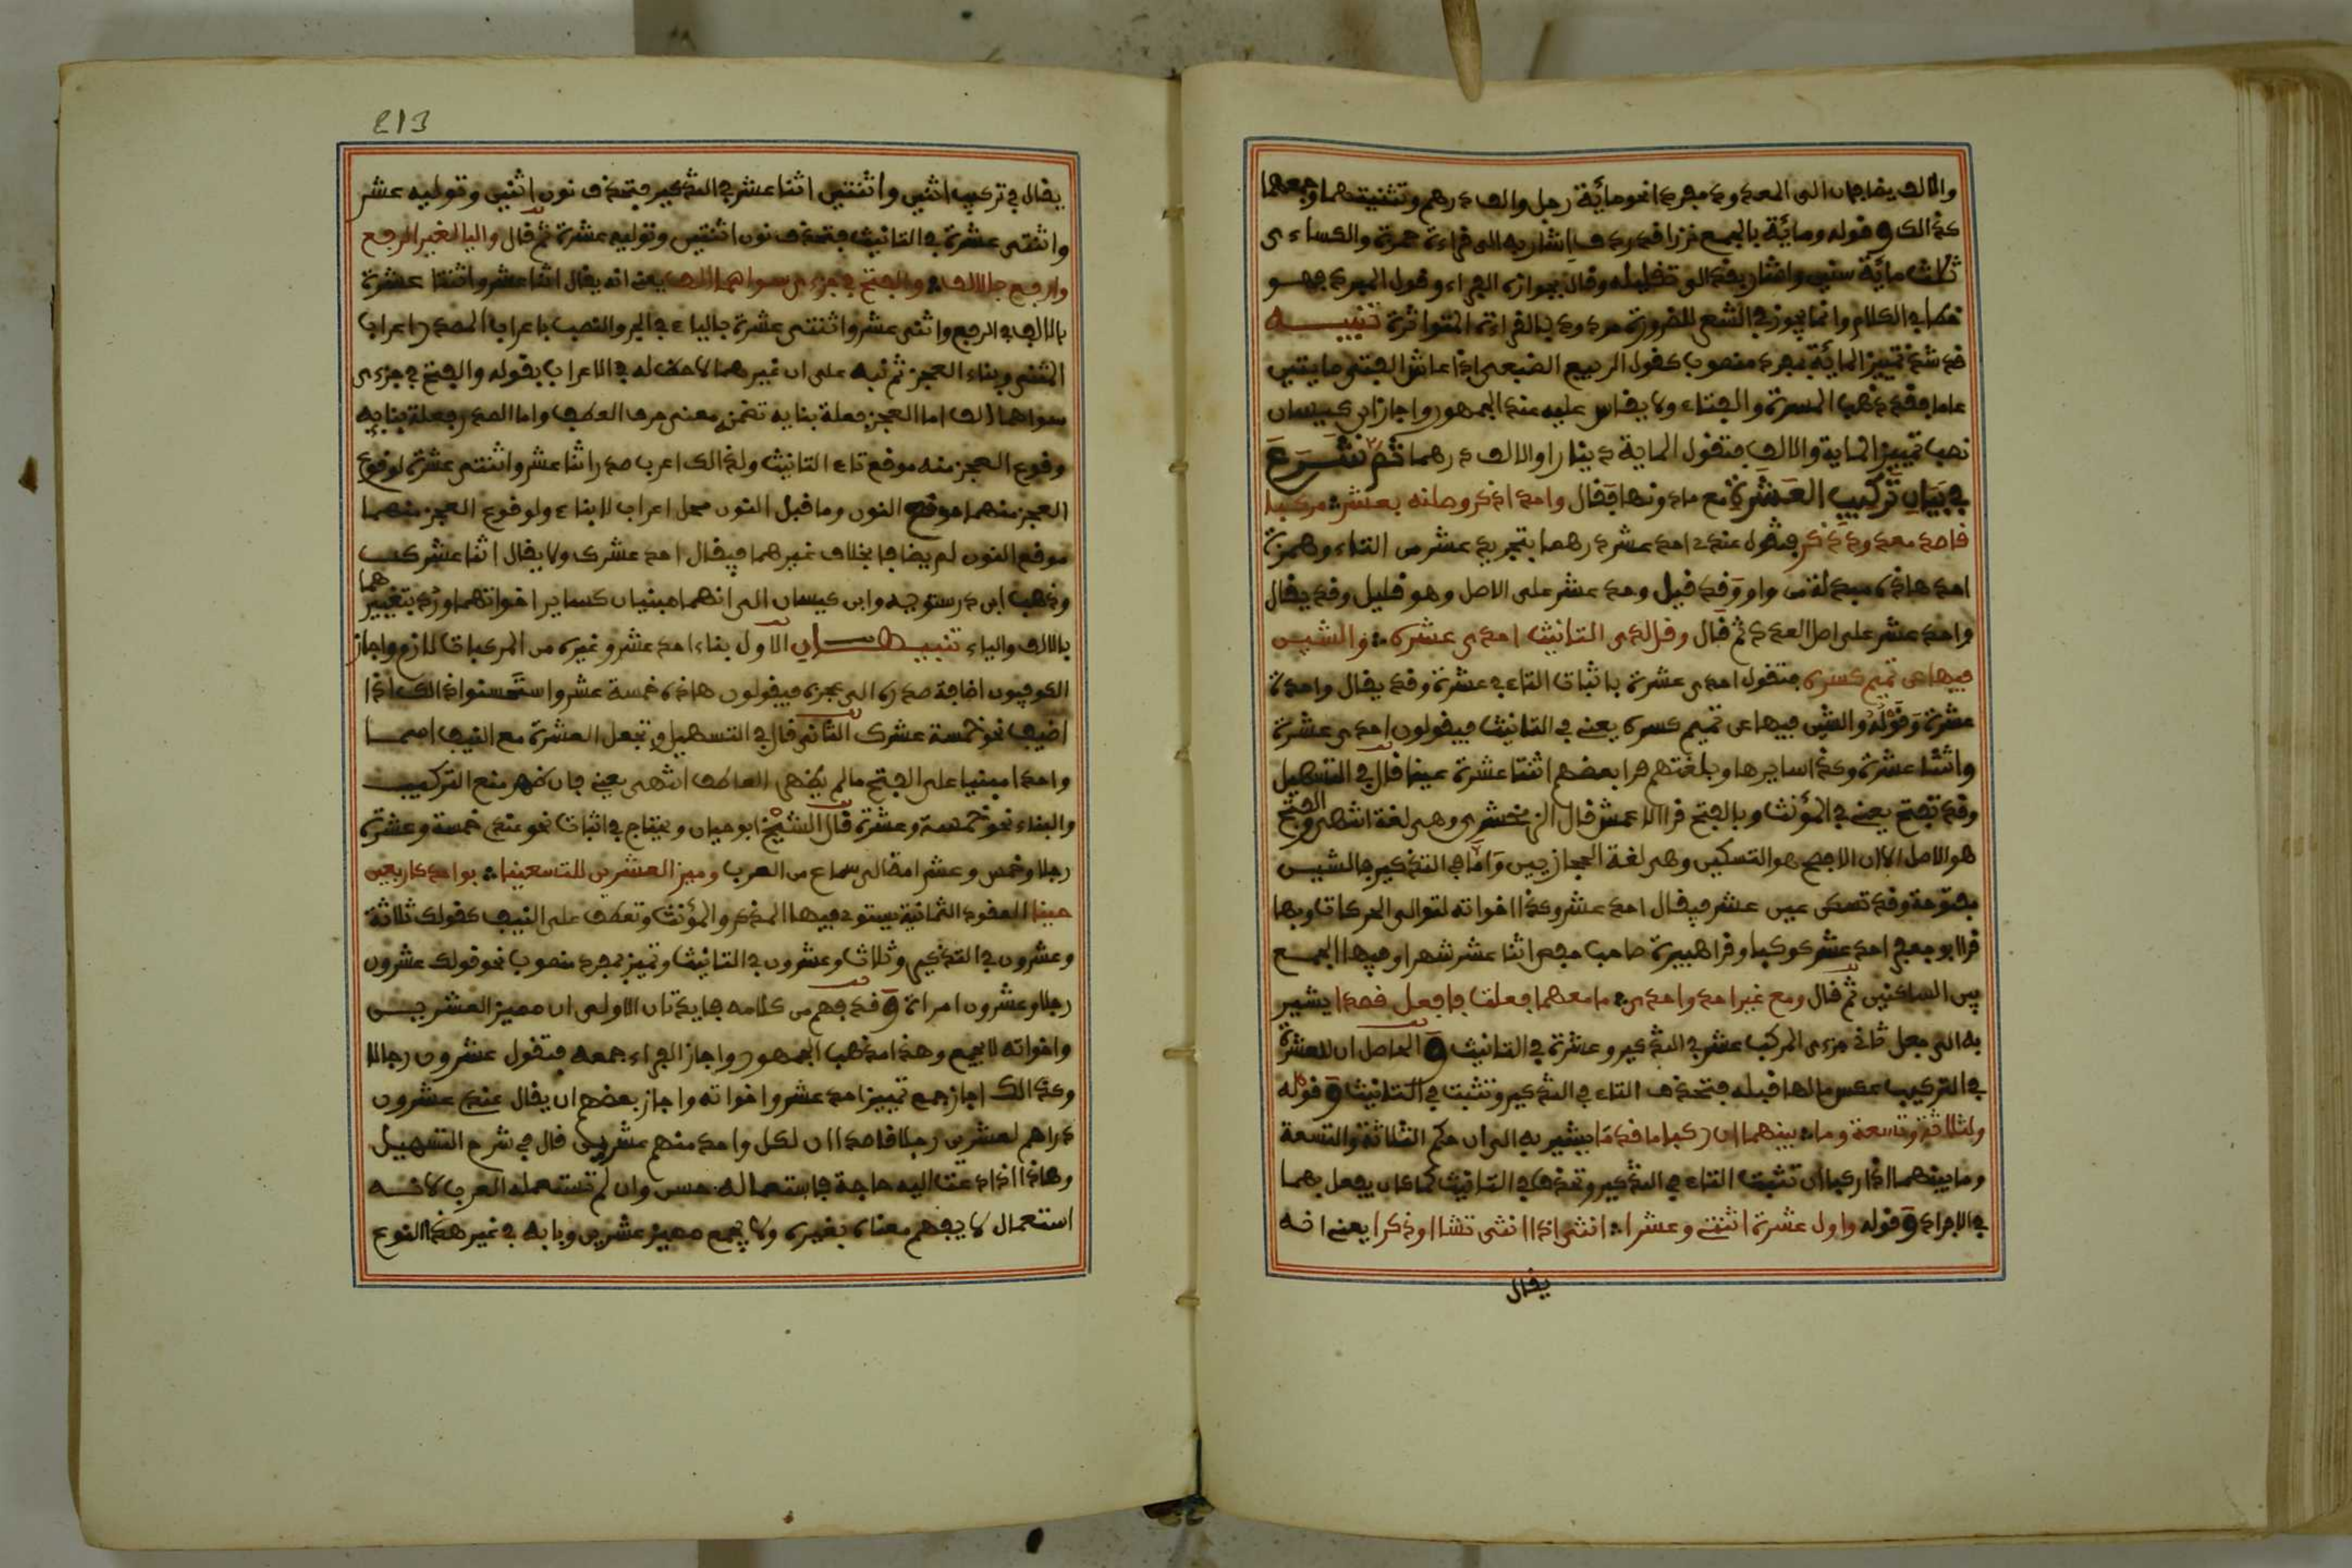 والالف يضافان الى المعدود مفردا نحو مائة رجل والف درهم وتثنيتهما وجمعهما
كذالك وقوله ومائة بالجمع نزرا قد ردف اشار به الى قراءة حمزة والكساءى
ثلاث مائة سنين واشار بقد الى تقليله وقال بجوازه الفراء وقول المبرد فهو
خطا في الكلام وانما يجوز في الشعر للضرورة مردود بالقراءة المتواترة تنبيه
قد شذ تمييز المائة بمفرد منصوب كقول الربيع الضبعى اذا عاش الفتى مايتين
عاما فقد ذهب المسرة والفتاء ولا يقاس عليه عند الجمهور واجاز ابن كيسان
نصب تمييز الماية والالف فتقول الماية دينارا والالف درهما ثم شرع
في بيان تركيب العشرة مع ما دونها فقال واحد اذكر وصلنه بعشر مركبا
قاصد معدود ذكر فتقول عندى احد عشر درهما بتجريد عشر من التاء وهمزة
احد هاذه مبدلة من واو وقد قيل وحد عشر على الاصل وهو قليل وقد يقال
واحد عشر على اصل العدد ثم قال وقل لدى التانيث احدى عشره والشين
فيها عن تميم كسره فتقول احدى عشرة باثبات التاء في عشرة وقد يقال واحدة
عشرة وقوله والشين فيها عن تميم كسره يعني في التانيث فيقولون احدى عشرة
واثنتا عشرة وكذا سايرها وبلغتهم قرا بعضهم اثنتا عشرة عينا قال في التسهيل
وقد تفتح يعني في المؤنث وبالفتح قرا الاعمش قال الزمخشرى وهى لغة اشهر والفتح
هو الاصل الا ان الافصح هو التسكين وهى لغة الحجازيين واما في التذكير فالشين
مفتوحة وقد تسكن عين عشر فيقال احد عشر وكذا اخواته لتوالى الحركات وبها
قرا ابو جعفر احد عشر كوكبا وقرا هبيرة صاحب حفص اثنا عشر شهرا وفيها الجمع
بين الساكنين ثم قال ومع غير احد واحدى ما معهما فعلت فافعل قصدا يشير
به الى جعل ثاني جزءى المركب عشر في التذكير وعشرة في التانيث والحاصل ان للعشرة
في التركيب عكس ما لها قبله فتحذف التاء في التذكير وتثبت في التانيث وقوله
ولثلاثة وتسعة وما بينهما ان ركبا ما قدما يشير به الى ان حكم الثلاثة والتسعة
وما بينهما اذا ركبا ان تثبت التاء في التذكير وتحذف في التانيث كما كان يفعل بهما
في الافراد وقوله واول عشرة اثنتي وعشرا اثنى اذا انثى تشا او ذكرا يعني انه
يقال
213
يقال في تركيب اثنين واثنتين اثنا عشر في التذكير فتحذف نون اثنين وتوليه عشر
واثنتى عشرة في التانيث فتحذف نون اثنتين وتوليه عشرة ثم قال واليا لغير الرفع
وارفع بالالف والفتح في جزءى سواهما الف يعني انه يقال اثنا عشر واثنتا عشرة
بالالف في الرفع واثنى عشر واثنتى عشرة بالياء في الجر والنصب باعراب الصدر اعراب
المثنى وبناء العجز ثم نبه على ان غيرهما لا حظ له في الاعراب بقوله والفتح في جزءى
سواهما الف اما العجز فعلة بنايه تضمن معنى حرف العطف واما الصدر فعلة بنايه
وقوع العجز منه موقع تاء التانيث ولذالك اعرب صدر اثنا عشر واثنتى عشرة لوقوع
العجز منهما موقع النون وما قبل النون محل اعراب لا بناء ولوقوع العجز منهما
موقع النون لم يضافا بخلاف غيرهما فيقال احد عشرك ولا يقال اثنا عشرك
وذهب ابن درستويه وابن كيسان الى انهما مبنيان كساير اخواتهما ورد بتغييرهما
بالالف والياء تنبيهان الاول بناء احد عشر وغيره من المركبات لازم واجاز
الكوفيون اضافة صدره الى عجزه فيقولون هاذه خمسة عشر واستحسنوا ذالك اذا
اضيف نحو خمسة عشرك الثاني قال في التسهيل وتجعل العشرة مع النيف اسما
واحدا مبنيا على الفتح ما لم يظهر العاطف انتهى يعني فان ظهر منع التركيب
والبناء نحو خمسة وعشرة قال الشيخ ابو حيان ويحتاج في اثبات نحو عندى خمسة وعشرة
رجلا وخمس وعشر امة الى سماع من العرب وميز العشرين للتسعينا بواحد كاربعين
حينا العقود الثمانية يستوى فيها المذكر والمؤنث وتعطف على النيف كقولك ثلاثة
وعشرون في التذكير وثلاث وعشرون في التانيث وتمييز بمفرد منصوب نحو قولك عشرون
رجلا وعشرون امراة وقد فهم من كلامه فايدتان الاولى ان مميز العشرين
واخواته لا يجمع وهذا مذهب الجمهور واجاز الفراء جمعه فتقول عشرون رجالا
وكذالك اجاز جمع تمييز احد عشر واخواته واجاز بعضهم ان يقال عندى عشرون
دراهم لعشرين رجلا قاصدا ان لكل واحد منهم عشرين قال في شرح التسهيل
وهاذا اذا دعت اليه حاجة فاستعماله حسن وان لم تستعمله العرب لانه
استعمال لا يفهم معناه بغيره ولا يجمع مميز عشرين وبابه في غير هذا النوع